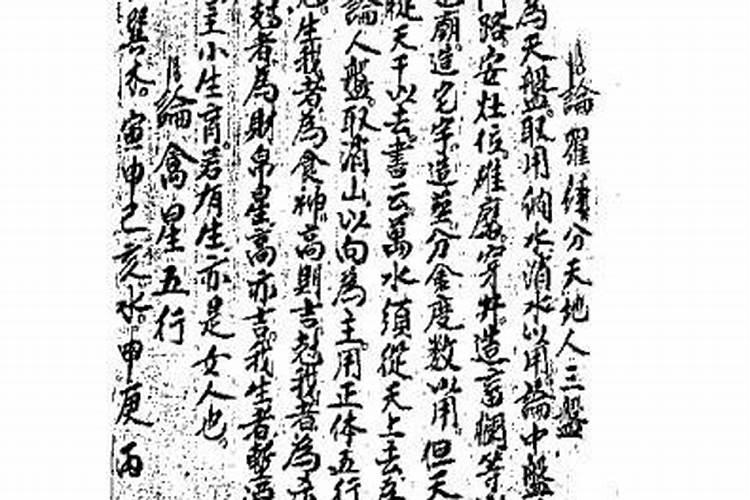 論羅经分天地人三盤
為天盤。取用納水消水以用論中盤
路。安灶位碓磨穿井。造畜欄等
廟造宅宇。造葬分金度数以用。但天
從天干以去書云萬水須從天上去
論人盤。取消山以向為主。用正体五行
生我者為食神。高則吉。尅我者為
尅者為財帛星高亦吉我生者
主小生育。若有生亦是女人也。
論禽星五行
巽禾。寅申巳亥水。甲庚丙